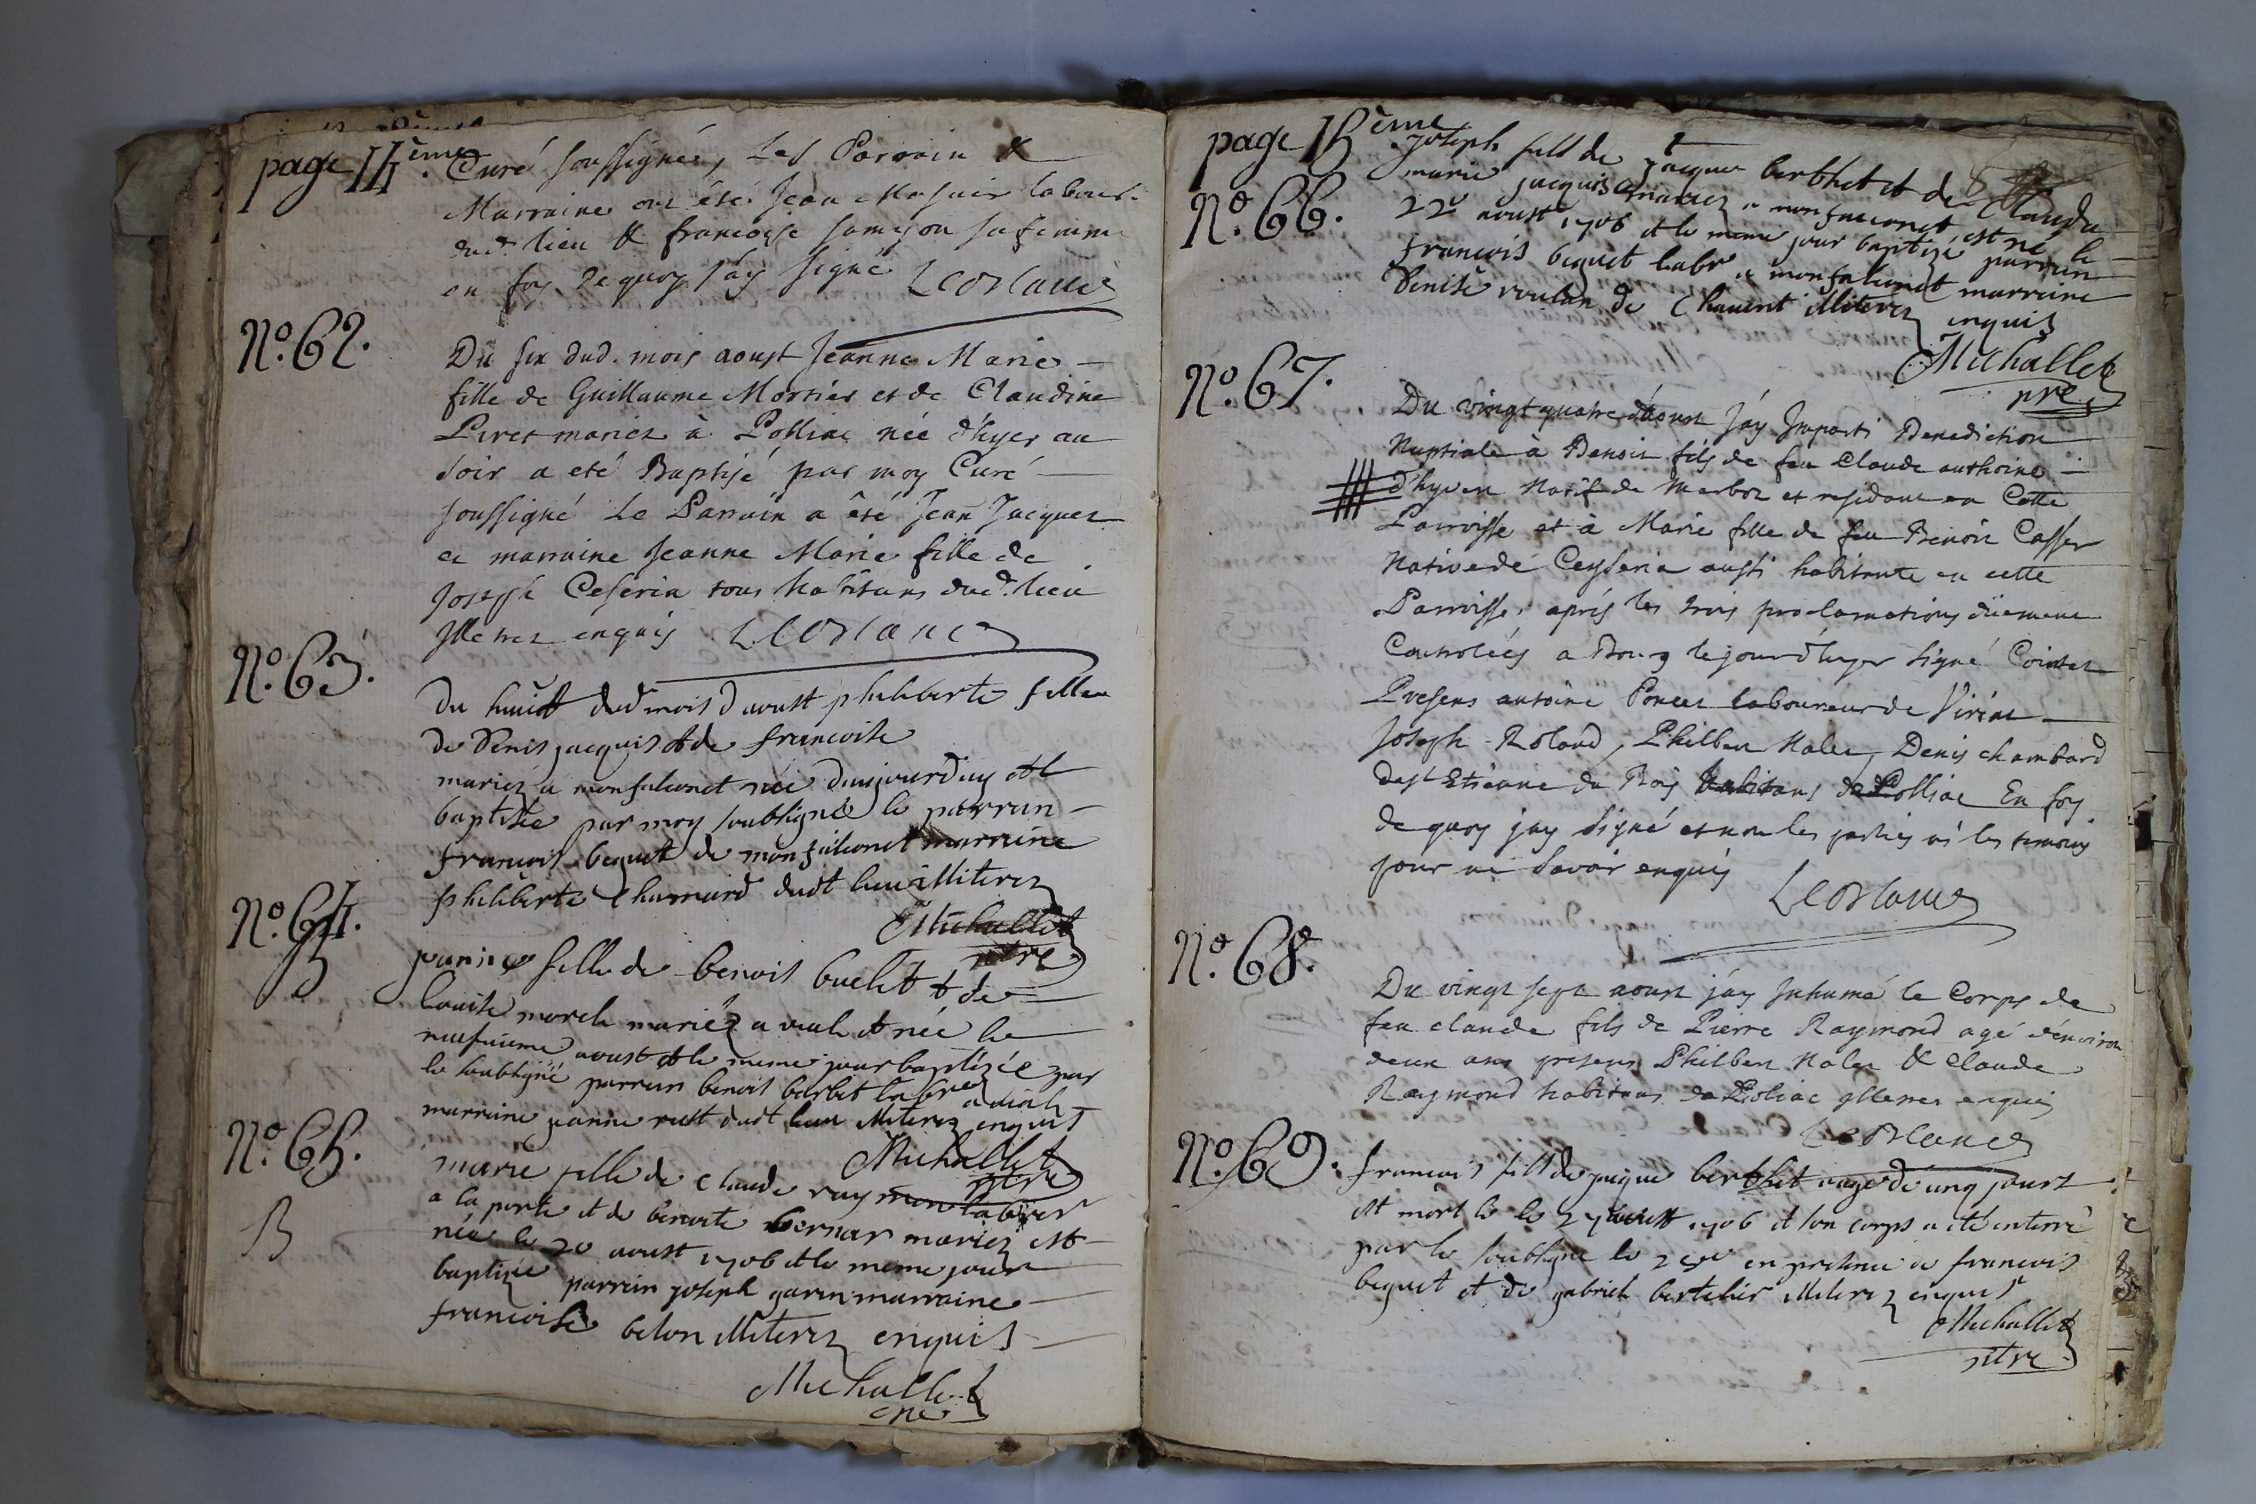 page 14ème.
Curé soussigné, Les Parrain &
Marraine ont été Jean Masuir labour.
dud. lieu & francoise sa femme
en foy de quoy j'ay signé LeBlanc
No. 62.
Du six dud. mois aoust Jeanne Marie
fille de Guillaume Mortier et de Claudine
Piret mariez à Polliac née d'hyer au
soir a eté Baptisé par moy Curé
soussigné Le Parrain a êté Jean Jacquez
et marraine Jeanne Marie fille de
Joseph Ceseria tous habitans dud. lieu
Illetrez enquis LeBlanc
No. 63.
Du huict dud mois d'aoust philiberte fille
de Denis jacquis et de francoise
mariez a monfalconet née daujourd'uy et
baptisée par moy soubsigné le parrain
francois bequet de monfalconet marraine
philiberte Chanard dudt lieu illiterez
Michallet
ptre
No. 64.
fille de benoit buelet et de
louise morel mariéz a vial et née le
neufuieme aoust et le meme jour baptizée par
le soubsigné parrain benoit barbet labr a vial
marraine jeanne rust dudt lieu illiterez enquis
Michallet
ptre
No. 65.
B
marie fille de Claude raymon laborer
a la porte et de benoite bernar mariez est
née le 20 aoust 1706 et le meme jour
baptizée parrain joseph garin marraine
francoise belon illiterez enquis
Michallet
ptre
page 15ème
No. 66.
joseph fils de jacque berthet et de Claudu
marie jacquis mariez a monfalconet est né le
22e aoust 1706 et le meme jour baptizé parrain
francois bequet labr a monfalconet marraine
Denise roulan de Chavent illiterez enquis
Michallet
ptre
No. 67.
Du vingt quatre d'aoust j'ay Imparti Benediction
Nuptiale à Benoit fils de feu Claude anthoine
d'hyver Natif de Marboz et residant en Cette
Parroisse et à Marie fille de feu Benoit Casser
Native de Ceyseria aussi habitante en cette
Parroisse, aprés les trois proclamations düement
Controlées a Bourg le jour d'hyer Signé Cointet
Presens antoine Poncet laboureur de Viriat
Joseph Roland, Philbert Nalet, Denis chambard
de St Etienne du Bois habitans de Polliac En foy
de quoy jay Signé et non les parties ni les temoins
pour ne Savoir enquis
LeBlanc
No. 68.
Du vingt sept aoust j'ay Inhumé le Corps de
feu claude fils de Pierre Raymond agé d'environ
deux ans presens Philbert Nalet & Claude
Raymond habitans de Poliac Illetrez enquis
LeBlanc
No. 69.
francois fils de jaque berthet agé de cinq jours
est mort le 27 aoust 1706 et son corps a été enterré
par le soubsigné le en presence de francois
bequet et de gabriel bertelier illiterez enquis
Michallet
ptre